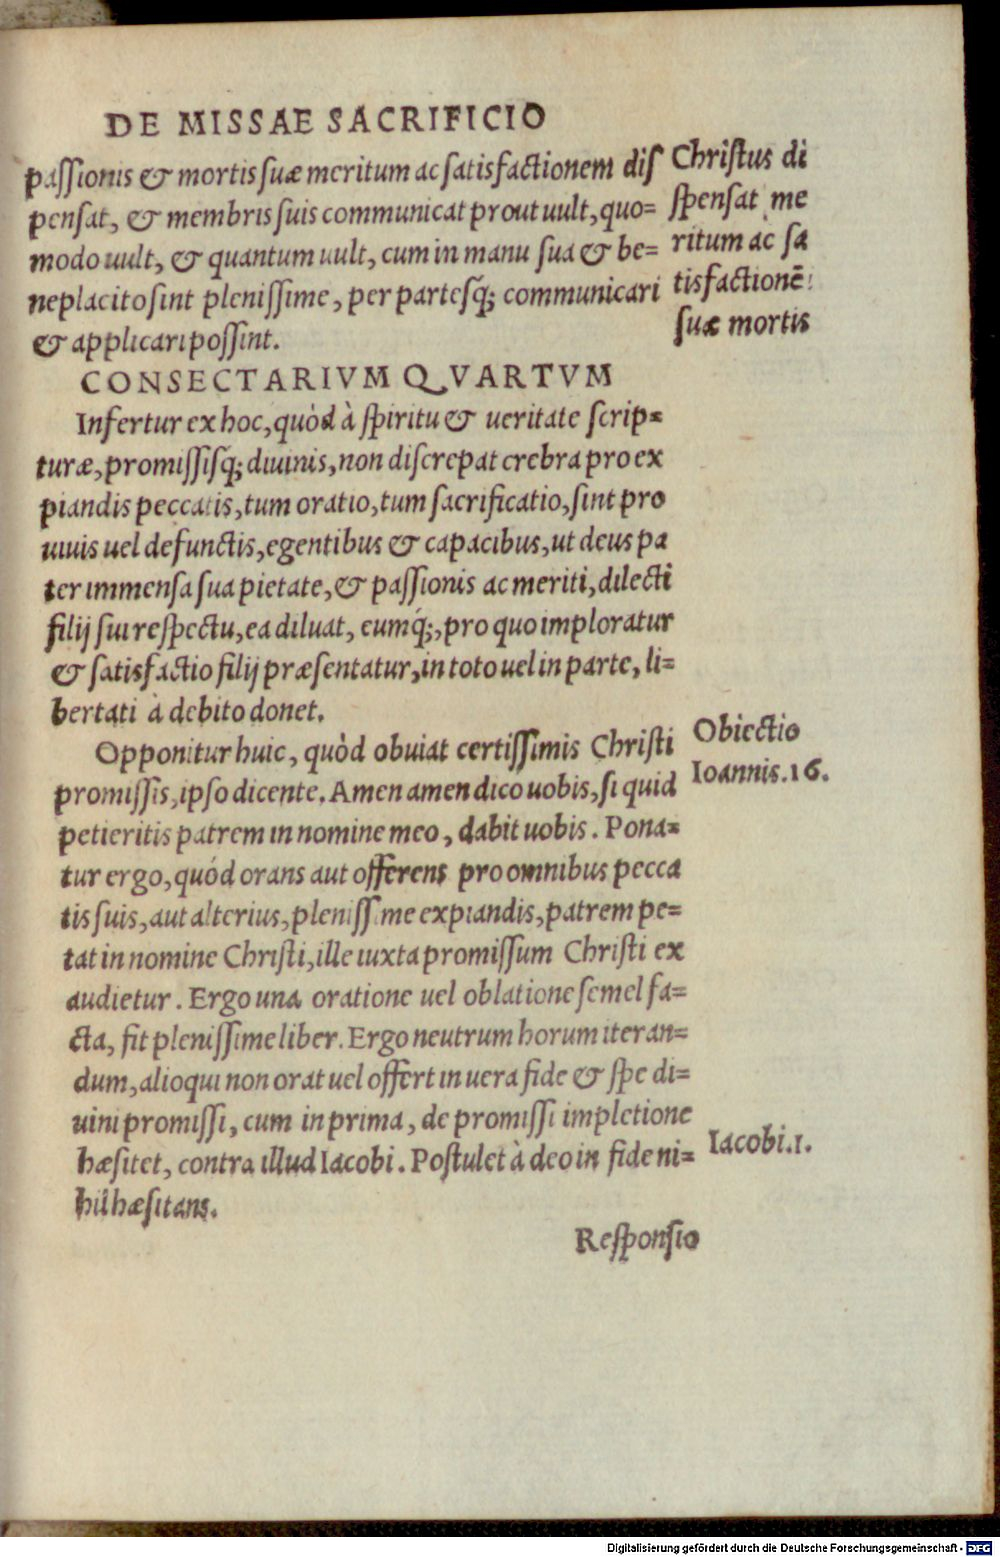 DE MISSAE SACRIFICIO
passionis & mortis suæ meritum ac satisfactionem dis
pensat, & membris suis communicat prout uult, quo=
modo uult, & quantum uult, cum in manu sua & be=
neplacito sint plenissime, per partesq́; communicari
& applicari possint.
Christus di
spensat me
ritum ac sa
tisfactionē
suæ mortis
CONSECTARIVM QVARTVM
Infertur ex hoc, quòd à spiritu & ueritate scrip=
turæ, promissisq́; diuinis, non discrepat crebra pro ex
piandis peccatis, tum oratio, tum sacrificatio, sint pro
uiuis uel defunctis, egentibus & capacibus, ut deus pa
ter immensa sua pietate, & passionis ac meriti, dilecti
filij sui respectu, ea diluat, eumq́;, pro quo imploratur
& satisfactio filij præsentatur, in toto uel in parte, li=
bertati à debito donet.
Opponitur huic, quòd obuiat certissimis Christi
promissis, ipso dicente. Amen amen dico uobis, si quid
petieritis patrem in nomine meo, dabit uobis. Pona=
tur ergo, quód orans aut offerens pro omnibus pecca
tis suis, aut alterius, plenissime expiandis, patrem pe=
tat in nomine Christi, ille iuxta promissum Christi ex
audietur. Ergo una oratione uel oblatione semel fa=
cta, fit plenissime liber. Ergo neutrum horum iteran=
dum, alioqui non orat uel offert in uera fide & spe di=
uini promissi, cum in prima, de promissi impletione
hæsitet, contra illud Iacobi. Postulet à deo in fide ni=
hil hæsitans.
Obiectio
Ioannis.16.
Iacobi.1.
Responsio
Digitalisierung gefördert durch die Deutsche Forschungsgemeinschaft - DFG